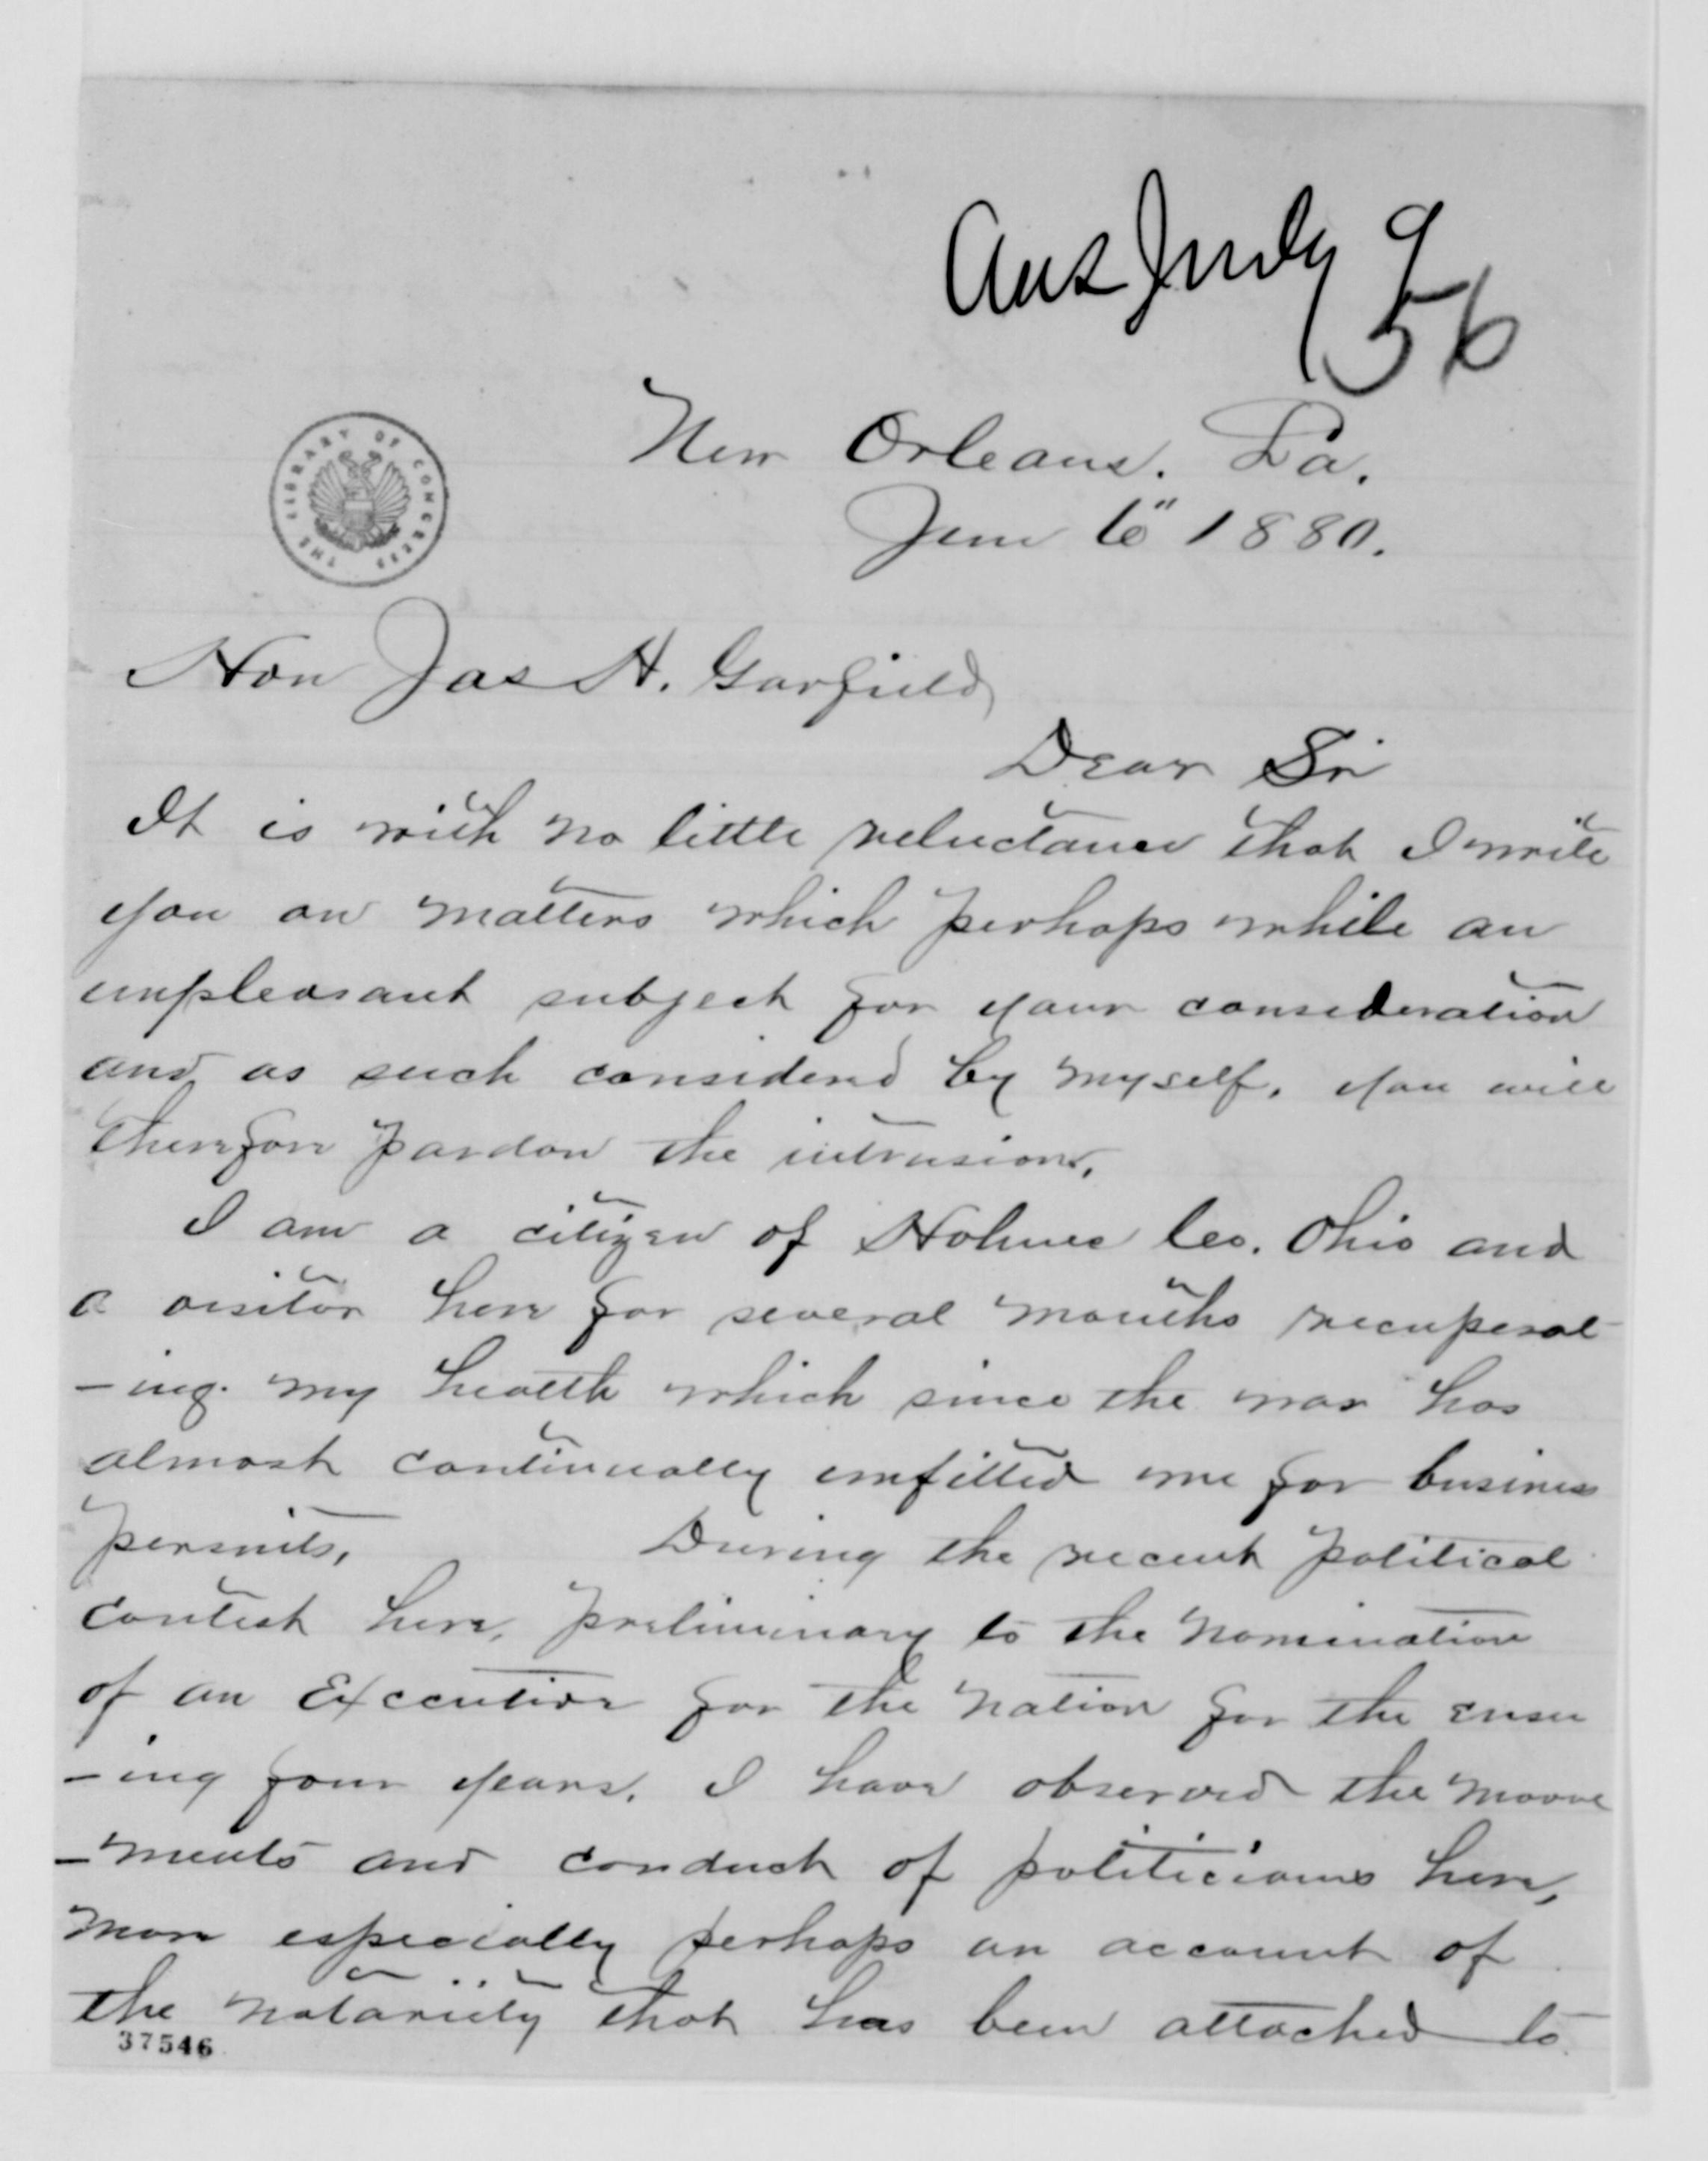 Ans July 9
56
New Orleans. La.
June 16" 1880.
THE LIBRARY OF CONGRESS
Hon Jas H. Garfield
Dear Sir
It is with no little reluctance that I write
you on matters which perhaps while an
unpleasant subject for your consideration
and as such considered by myself, you will
therefore pardon the intrusion.
I am a citizen of Holmes Co. Ohio and
a visitor here for several months recuperat-
-ing my health which since the war has
almost continually unfitted me for business
persuits. During the recent political
contest here, preliminary to the nomination
of an Executive for the nation for the ensu
-ing four years. I have observed the moove
-ments and conduct of politicians here,
more especially perhaps on account of
the notoriety that has been attached to
37546